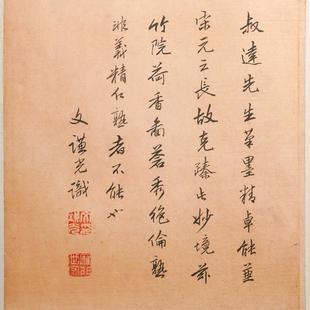 叔達先生筆墨精卓能兼
宋元之長故克臻此妙境茲
竹院荷香圖蒼秀絕倫熟
非義精仁熟者不能也
文謹光識